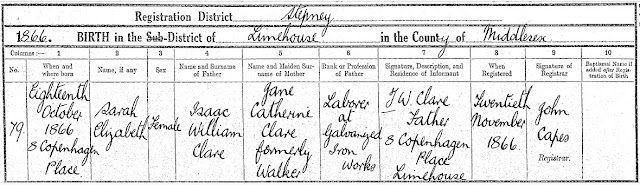 Registration District Stepney
1866. BIRTH in the Sub-District of Limehouse in the County of Middlesex
Columns:— 1 2 3 4 5 6 7 8 9 10
No. When and where born Name, if any Sex Name and Surname of Father Name and Maiden Surname of Mother Rank or Profession of Father Signature, Description, and Residence of Informant When Registered Signature of Registrar Baptismal Name if added after Registration of Birth
79. Eighteenth October 1866 8 Copenhagen Place Sarah Elizabeth Female Isaac William Clare Jane Catherine Clare formerly Walker Laborer at Galvanized Iron Works I W. Clare Father 8 Copenhagen Place Limehouse Twentieth November 1866. John Capes Registrar.